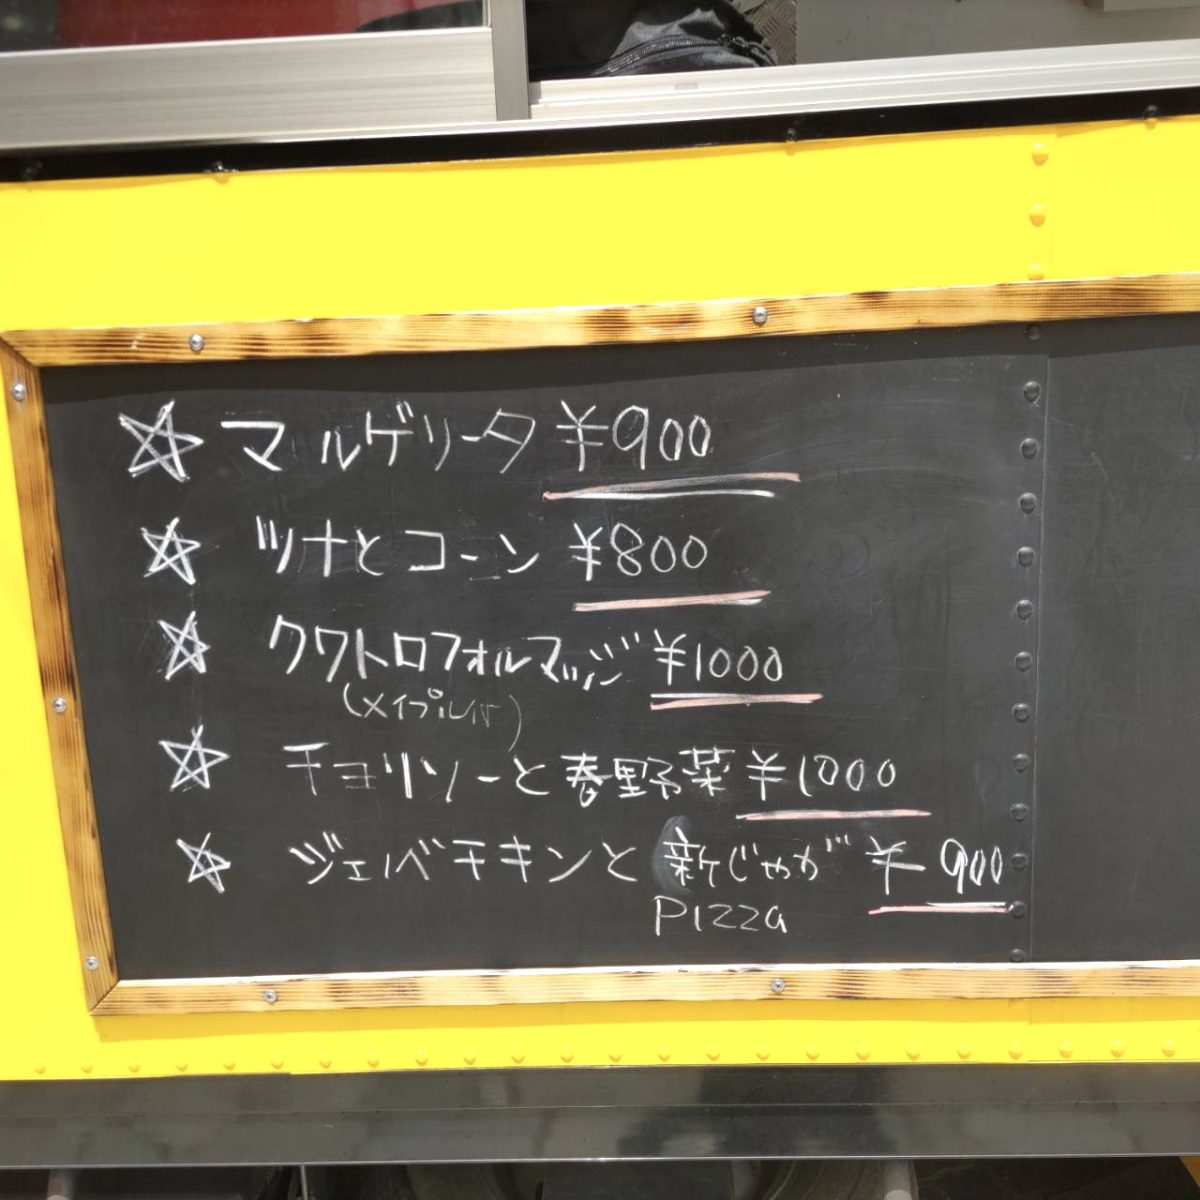 ☆ マルゲリータ ¥900
☆ ツナとコーン ¥800
☆ クワトロフォルマッジ ¥1000
(メイプル付)
☆ チョリソーと春野菜 ¥1000
☆ ジェノベチキンと新じゃが ¥900
PIZZA